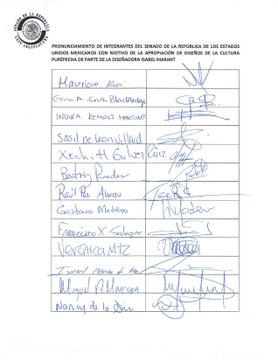 PRONUNCIAMIENTO DE INTEGRANTES DEL SENADO DE LA REPÚBLICA DE LOS ESTADOS
UNIDOS MEXICANOS CON MOTIVO DE LA APROPIACIÓN DE DISEÑOS DE LA CULTURA
PURÉPECHA DE PARTE DE LA DISEÑADORA ISABEL MARANT
Mauricio Kuri
Gina A. Cruz Blackledge
INDIRA KEMPIS MARTINEZ
Sasil de León Villard
Xóchitl Gálvez Ruiz
Beatriz Paredes
Raúl Paz Alonzo
Gustavo Madero
Francisco X Salazar
Verónica Mtz
Ismael
Miguel A. Mancera
Nancy de la